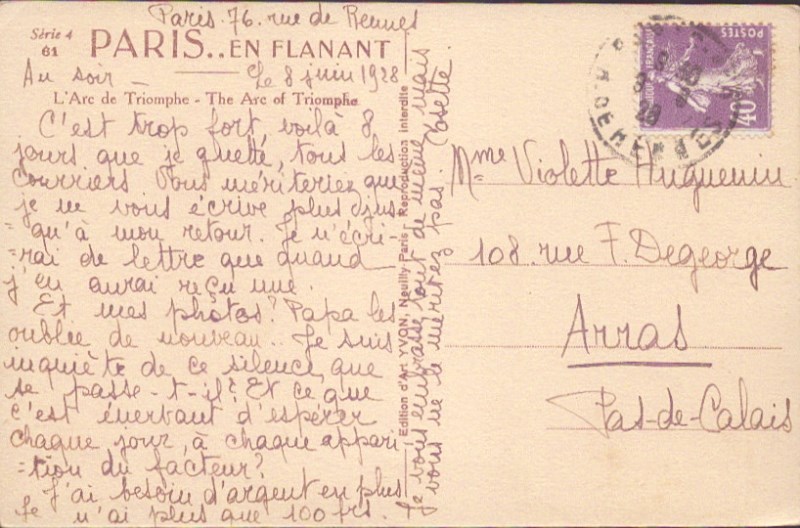 Paris 76. rue de Rennes
Série 4
61
PARIS.. EN FLANANT
Au soir - Le 8 juin 1928
L'Arc de Triomphe - The Arc of Triomphe
C'est trop fort, voilà 8
jours que je guette, tous les
courriers. Vous mériteriez que
je ne vous écrive plus djus-
-qu'à mon retour. Je n'écri-
-rai de lettre que quand
j'en aurai reçu une.
Et mes photos? Papa les
oublie de nouveau.. Je suis
inquiète de ce silence, que
se passe-t-il? Et ce que
c'est énervant d'espérer
chaque jour, à chaque appari
-tion du facteur?
J'ai besoin d'argent en plus
Je n'ai plus que 100 frs.
Je vous embrasse tout de même mais
vous ne le méritez pas. Yosette
Edition d'Art YVON, Neuilly Paris. Reproduction interdite
POSTES
40
Mme Violette Huguenin
108 rue F. Degeorge
Arras
Pas-de-Calais